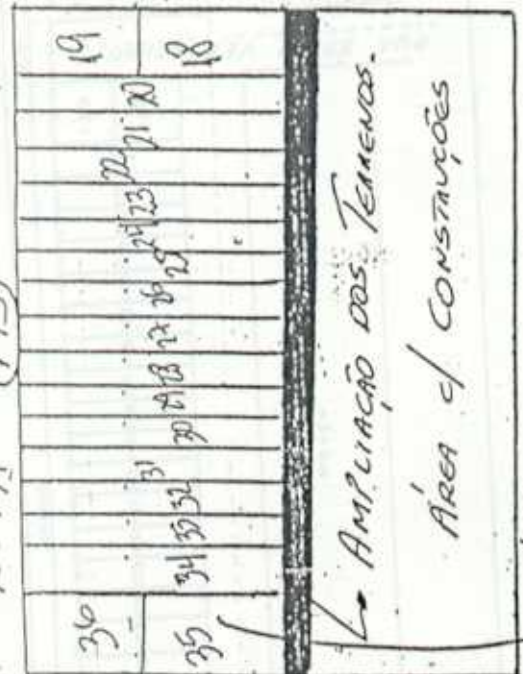 36
35
34 33 32 31 30 29 28 27 26 25 24 23 22 21 20
19
18
AMPLIAÇÃO DOS TERRENOS.
ÁREA c/ CONSTRUÇÕES